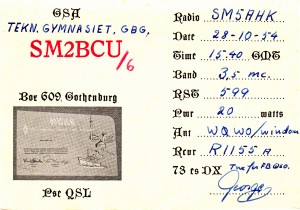 GSA
TEKN. GYMNASIET, GBG,
SM2BCU/6
Box 609 Gothenburg
Pse QSL
Radio SM5AHK
Date 28-10-54
Time 15.40 GMT
Band 3,5 mc.
RST 599
Pwr 20 watts
Ant WQWO/window
Rcvr R1155A
73 es DX Tnx for FB QSO.
George